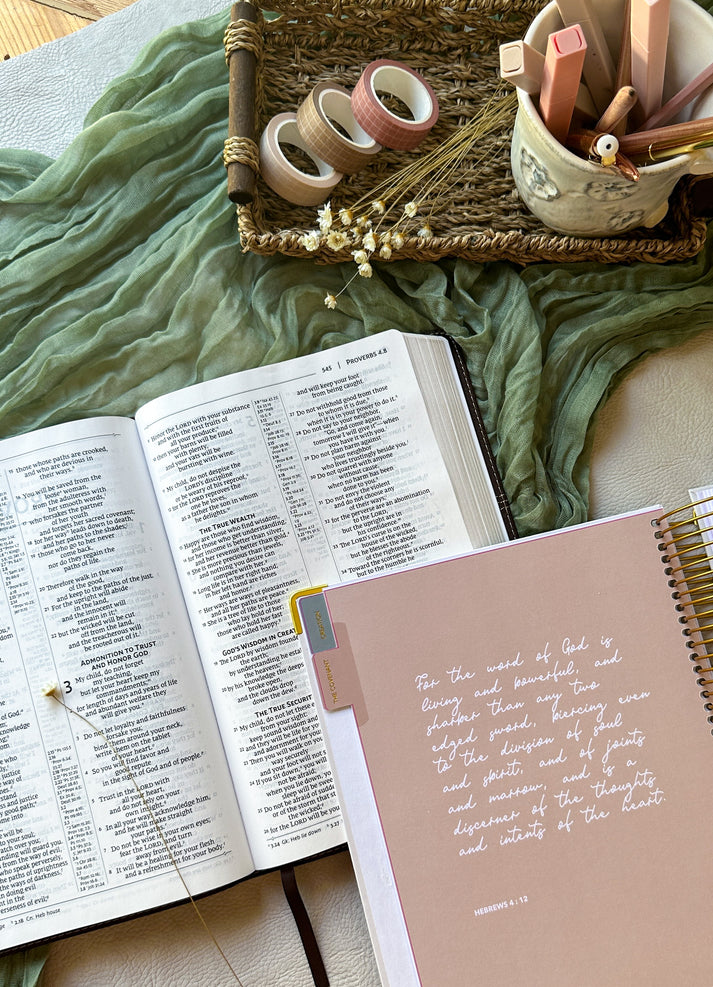 15 those whose paths are crooked,
and who are devious in
their ways.
16 You will be saved from the
loose woman,
from the adulteress with
her smooth words,
17 who forsakes the partner
of her youth
and forgets her sacred covenant;
18 for her way leads down to death,
and her paths to the shades;
19 those who go to her never
come back,
nor do they regain the
paths of life.
20 Therefore walk in the way
of the good,
and keep to the paths of the just.
21 For the upright will abide
in the land,
and the innocent will
remain in it;
22 but the wicked will be cut
off from the land,
and the treacherous will
be rooted out of it.
ADMONITION TO TRUST
AND HONOR GOD
3 My child, do not forget
my teaching,
but let your heart keep my
commandments,
2 for length of days and years of life
and abundant welfare they
will give you.
3 Do not let loyalty and faithfulness
forsake you;
bind them around your neck,
write them on the tablet
of your heart.
4 So you will find favor and
good repute
in the sight of God and of people.
5 Trust in the LORD with
all your heart,
and do not rely on your
own insight.
6 In all your ways acknowledge him,
and he will make straight
your paths.
7 Do not be wise in your own eyes;
fear the LORD and turn
away from evil.
8 It will be a healing for your flesh
and a refreshment for your body.
2.18 Cn: Heb house
545 | PROVERBS 4.8
9 Honor the LORD with your substance
and with the first fruits of
all your produce;
10 then your barns will be filled
with plenty,
and your vats will be
bursting with wine.
11 My child, do not despise the
LORD's discipline
or be weary of his reproof,
12 for the LORD reproves the
one he loves,
as a father the son in whom
he delights.
THE TRUE WEALTH
13 Happy are those who find wisdom
and those who get understanding,
14 for her income is better than silver
and her revenue better than gold.
15 She is more precious than jewels,
and nothing you desire can
compare with her.
16 Long life is in her right hand;
in her left hand are riches
and honor.
17 Her ways are ways of pleasantness,
and all her paths are peace.
18 She is a tree of life to those
who lay hold of her;
those who hold her fast
are called happy.
GOD'S WISDOM IN CREA
19 The LORD by wisdom founde
by understanding he esta
the heavens;
20 by his knowledge the deeps
broke open,
and the clouds drop
down the dew.
THE TRUE SECURIT
21 My child, do not let these e
from your sight;
keep sound wisdom and
22 and they will be life for yo
and adornment for your
23 Then you will walk on you
way securely
and your foot will not s
24 If you sit down, you will
be afraid;
when you lie down, yo
25 Do not be afraid of sudde
or of the storm that
26 for the LORD will be you
3.24 Gk: Heb lie down
and will keep your foot
from being caught.
27 Do not withhold good from those
to whom it is due,
when it is in your power to do it.
28 Do not say to your neighbor,
"Go, and come again;
tomorrow I will give it"—
when you have it with you.
29 Do not plan harm against
your neighbor
who lives trustingly beside you.
30 Do not quarrel with anyone
without cause,
when no harm has been
done to you.
31 Do not envy the violent
and do not choose any
of their ways,
32 for the perverse are an abomination
to the LORD,
but the upright are in
his confidence.
33 The LORD's curse is on the
house of the wicked,
but he blesses the abode
of the righteous.
34 Toward the scorners he is scornful,
but to the humble he
THE COVENANT
For the word of God is
living and powerful, and
sharper than any two
edged sword, piercing even
to the division of soul
and spirit, and of joints
and marrow, and is a
discerner of the thoughts
and intents of the heart.
HEBREWS 4:12